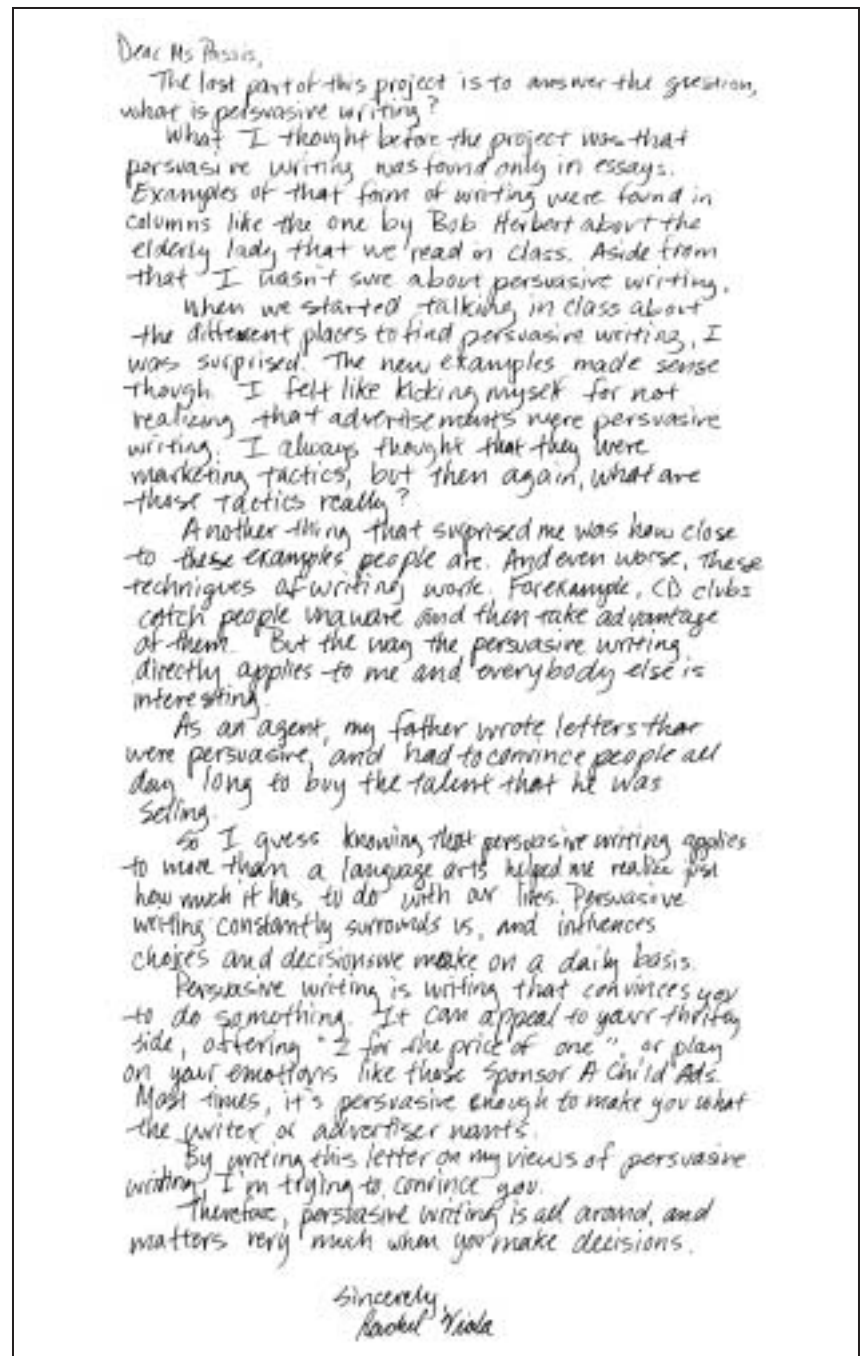 Dear Ms Passis,
The last part of this project is to answer the question,
what is persuasive writing?
What I thought before the project was that
persuasive writing was found only in essays.
Examples of that form of writing were found in
columns like the one by Bob Herbert about the
elderly lady that we read in class. Aside from
that I wasn't sure about persuasive writing.
When we started talking in class about
the different places to find persuasive writing, I
was surprised. The new examples made sense
though. I felt like kicking myself for not
realizing that advertisements were persuasive
writing. I always thought that they were
marketing tactics, but then again, what are
those tactics really?
Another thing that surprised me was how close
to these examples people are. And even worse, These
techniques of writing work. For example, CD clubs
catch people unaware and then take advantage
of them. But the way the persuasive writing
directly applies to me and everybody else is
interesting.
As an agent, my father wrote letters that
were persuasive, and had to convince people all
day long to buy the talent that he was
selling.
So I guess knowing that persuasive writing applies
to more than a language arts helped me realize just
how much it has to do with our lives. Persuasive
writing constantly surrounds us, and influences
choices and decisions we make on a daily basis.
Persuasive writing is writing that convinces you
to do something. It can appeal to your thrifty
side, offering "2 for the price of one", or play
on your emotions like those Sponsor A Child Ads.
Most times, it's persuasive enough to make you what
the writer or advertiser wants.
By writing this letter on my views of persuasive
writing I'm trying to convince you.
Therefore, persuasive writing is all around, and
matters very much when you make decisions.
Sincerely,
Rachel Viola